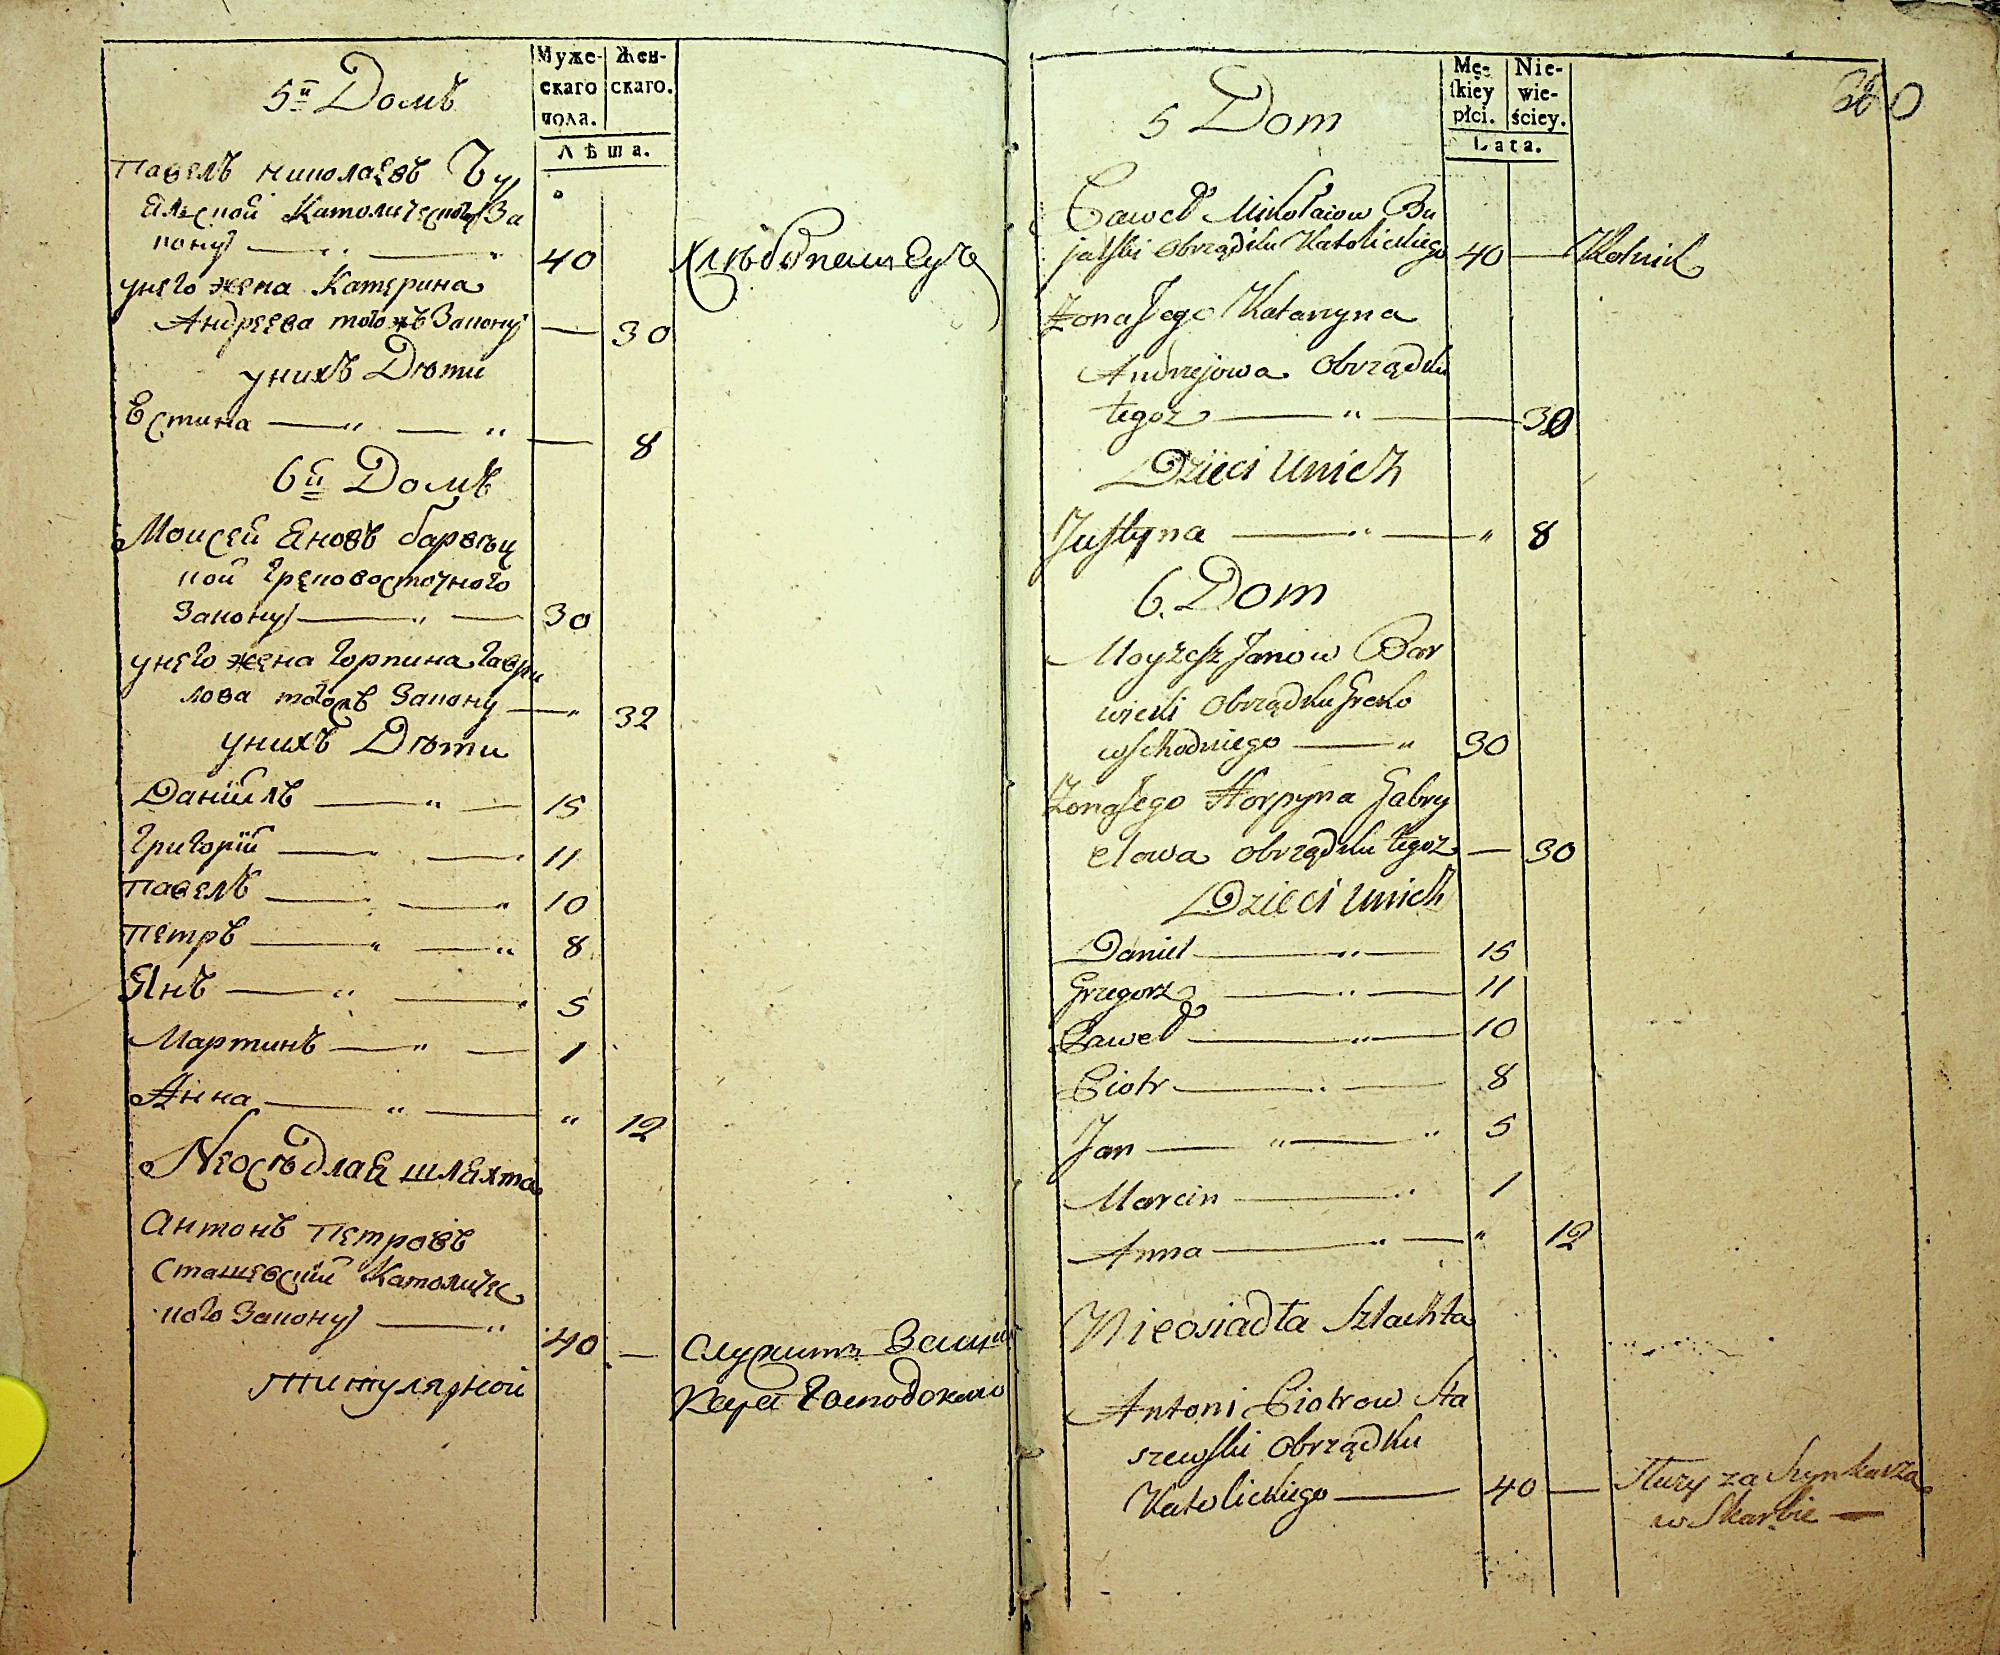 Муже-
скаго
пола.
Жен-
скаго.
Лѣта.
5й Домъ
Павелъ Николаевъ Бу
яльской Католическаго За
кону — „ — „ 40 Хлѣбопашецъ
у него жена Катерина
Андреева того жъ Закону — 30
у нихъ Дѣти
Естина — „ — „ — 8
6й Домъ
Моисей Яновъ Барвѣц
кой Грековосточного
Закону — „ — 30
у него жена Горпина Гаври
лова того жъ Закону — „ 32
у нихъ Дѣти
Данiилъ — „ — 15
Григорiй — „ — „ 11
Павелъ — „ — „ 10
Петръ — „ — „ 8
Янъ — „ — „ 5
Мартинъ — „ — 1
Анна — „ — „ 12
Неосѣдлая шляхта
Антонъ Петровъ
Сташевскiй Католичес
кого Закону — „ 40 — Служитъ
Господском
титулярной
Męz-
skiey
płci.
Nie-
wie-
ściey.
Lata.
5 Dom
Paweł Mikołaiow Bu
jalski Obrządku Katolickiego 40 — Rolnik
Żona Jego Katarzyna
Andrzejowa Obrządku
tegoż — „ — 30
Dzieci U nich
Justyna — „ — „ 8
6. Dom
Moyżesz Janow Bar
wiecki Obrządku Greko
wschodniego — „ 30
Żona Jego Horpyna Gabry
elowa Obrządku tegoż — 30
Dzieci U nich
Daniel — „ — 15
Grzegorz — „ — 11
Paweł — „ — 10
Piotr — „ — 8
Jan — „ — „ 5
Marcin — „ 1
Anna — „ — „ 12
Nieosiadła Szlachta
Antoni Piotrow Sta
szewski Obrządku
Katolickiego — 40 — Służy za Szynkarza
w Skarbie —